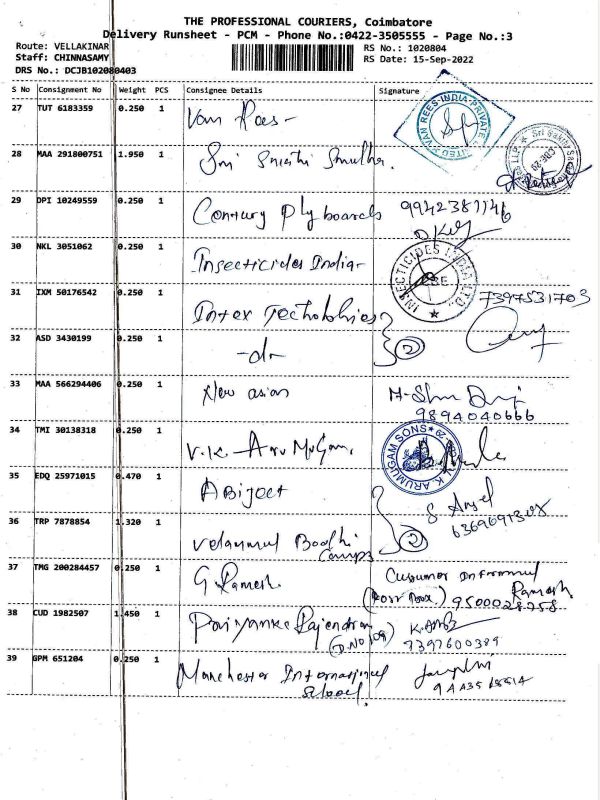 THE PROFESSIONAL COURIERS, Coimbatore
Delivery Runsheet - PCM - Phone No.:0422-3505555 - Page No.:3
Route: VELLAKINAR RS No.: 1020804
Staff: CHINNASAMY RS Date: 15-Sep-2022
DRS No.: DCJB102080403
S No Consignment No Weight PCS Consignee Details Signature
27 TUT 6183359 0.250 1 Van Rees - VAN REES INDIA PRIVATE LIMITED
28 MAA 291800751 1.950 1 Sri
29 DPI 10249559 0.250 1 Century Ply boards 9942387746
30 NKL 3051062 0.250 1 Insecticides India- INSECTICIDES INDIA LTD.,
31 IXM 50176542 0.250 1 Intex 7397531703
32 ASD 3430199 0.250 1 -do- 2
33 MAA 566294406 0.250 1 New asian 9894040666
34 TMI 30138318 0.250 1 V.K. Arumugam. V.K ARUMUGAM SONS
35 EDQ 25971015 0.470 1 Abijeet
36 TRP 7878854 1.320 1 2
37 TMG 200284457 0.250 1 G Ramesh. Ramesh
38 CUD 1982507 1.450 1 Priyanka Rajendran (D.No 109) 7397600389
39 GPM 651204 0.250 1 Manchester International School.